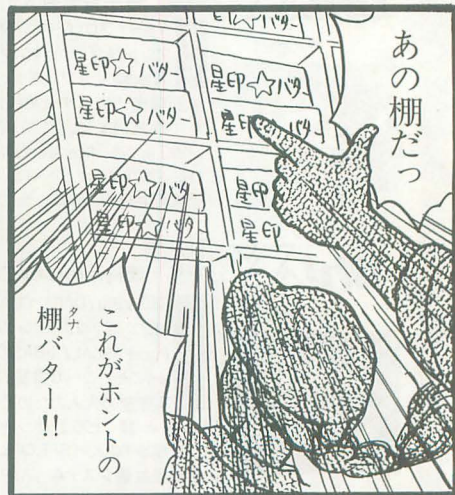 あの棚だっ
星印☆バター
星印☆バター
星印☆バター
星印☆バター
星印☆バタ
星印☆バタ
星印
星印
これがホントの
棚バター!!
タナ